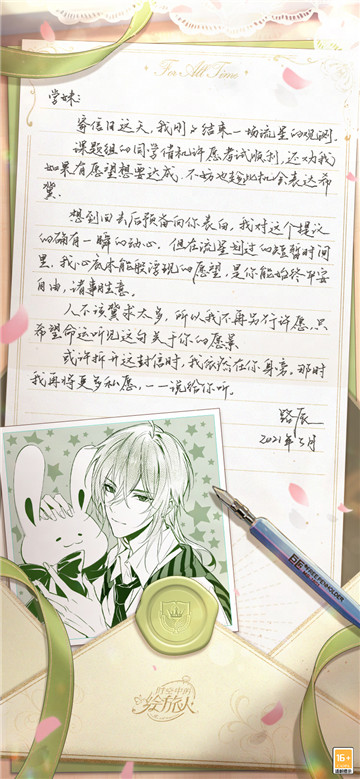 For All Time
学妹:
寄信日这天，我刚刚结束一场流星的观测.
课题组的同学借机许愿考试顺利，还劝我
如果有愿望想要达成，不妨也趁此机会表达希
冀.
想到回去后预备向你表白，我对这个提议
的确有一瞬的动心。但在流星划过的短暂时间
里，我心底末能般浮现的愿望，是你能始终平安
自由，诸事生意。
人不该冀求太多，所以我不再另行许愿，只
希望命运听见这句关于你的愿景
或许拆开这封信时，我依然在你身旁，那时
我再将更多私愿，一一说给你听。
路辰
2021年3月
时空中的
绘旅人
16+